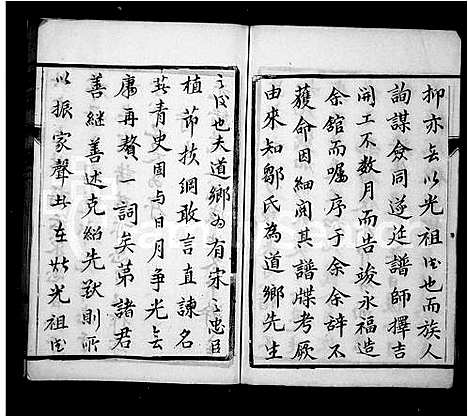 抑亦無以光祖德也而族人
詢謀僉同遂延譜師擇吉
開工不數月而告竣永福造
余舘而囑序于余余辭不
獲命因細閱其譜牒考厥
由來知鄒氏為道鄉先生
之後也夫道鄉為有宋之忠臣
植節扶綱敢言直諫名
垂青史固与日月争光無
庸再贅一詞矣第諸君
善繼善述克紹先猷則所
以振家聲此在於光祖德